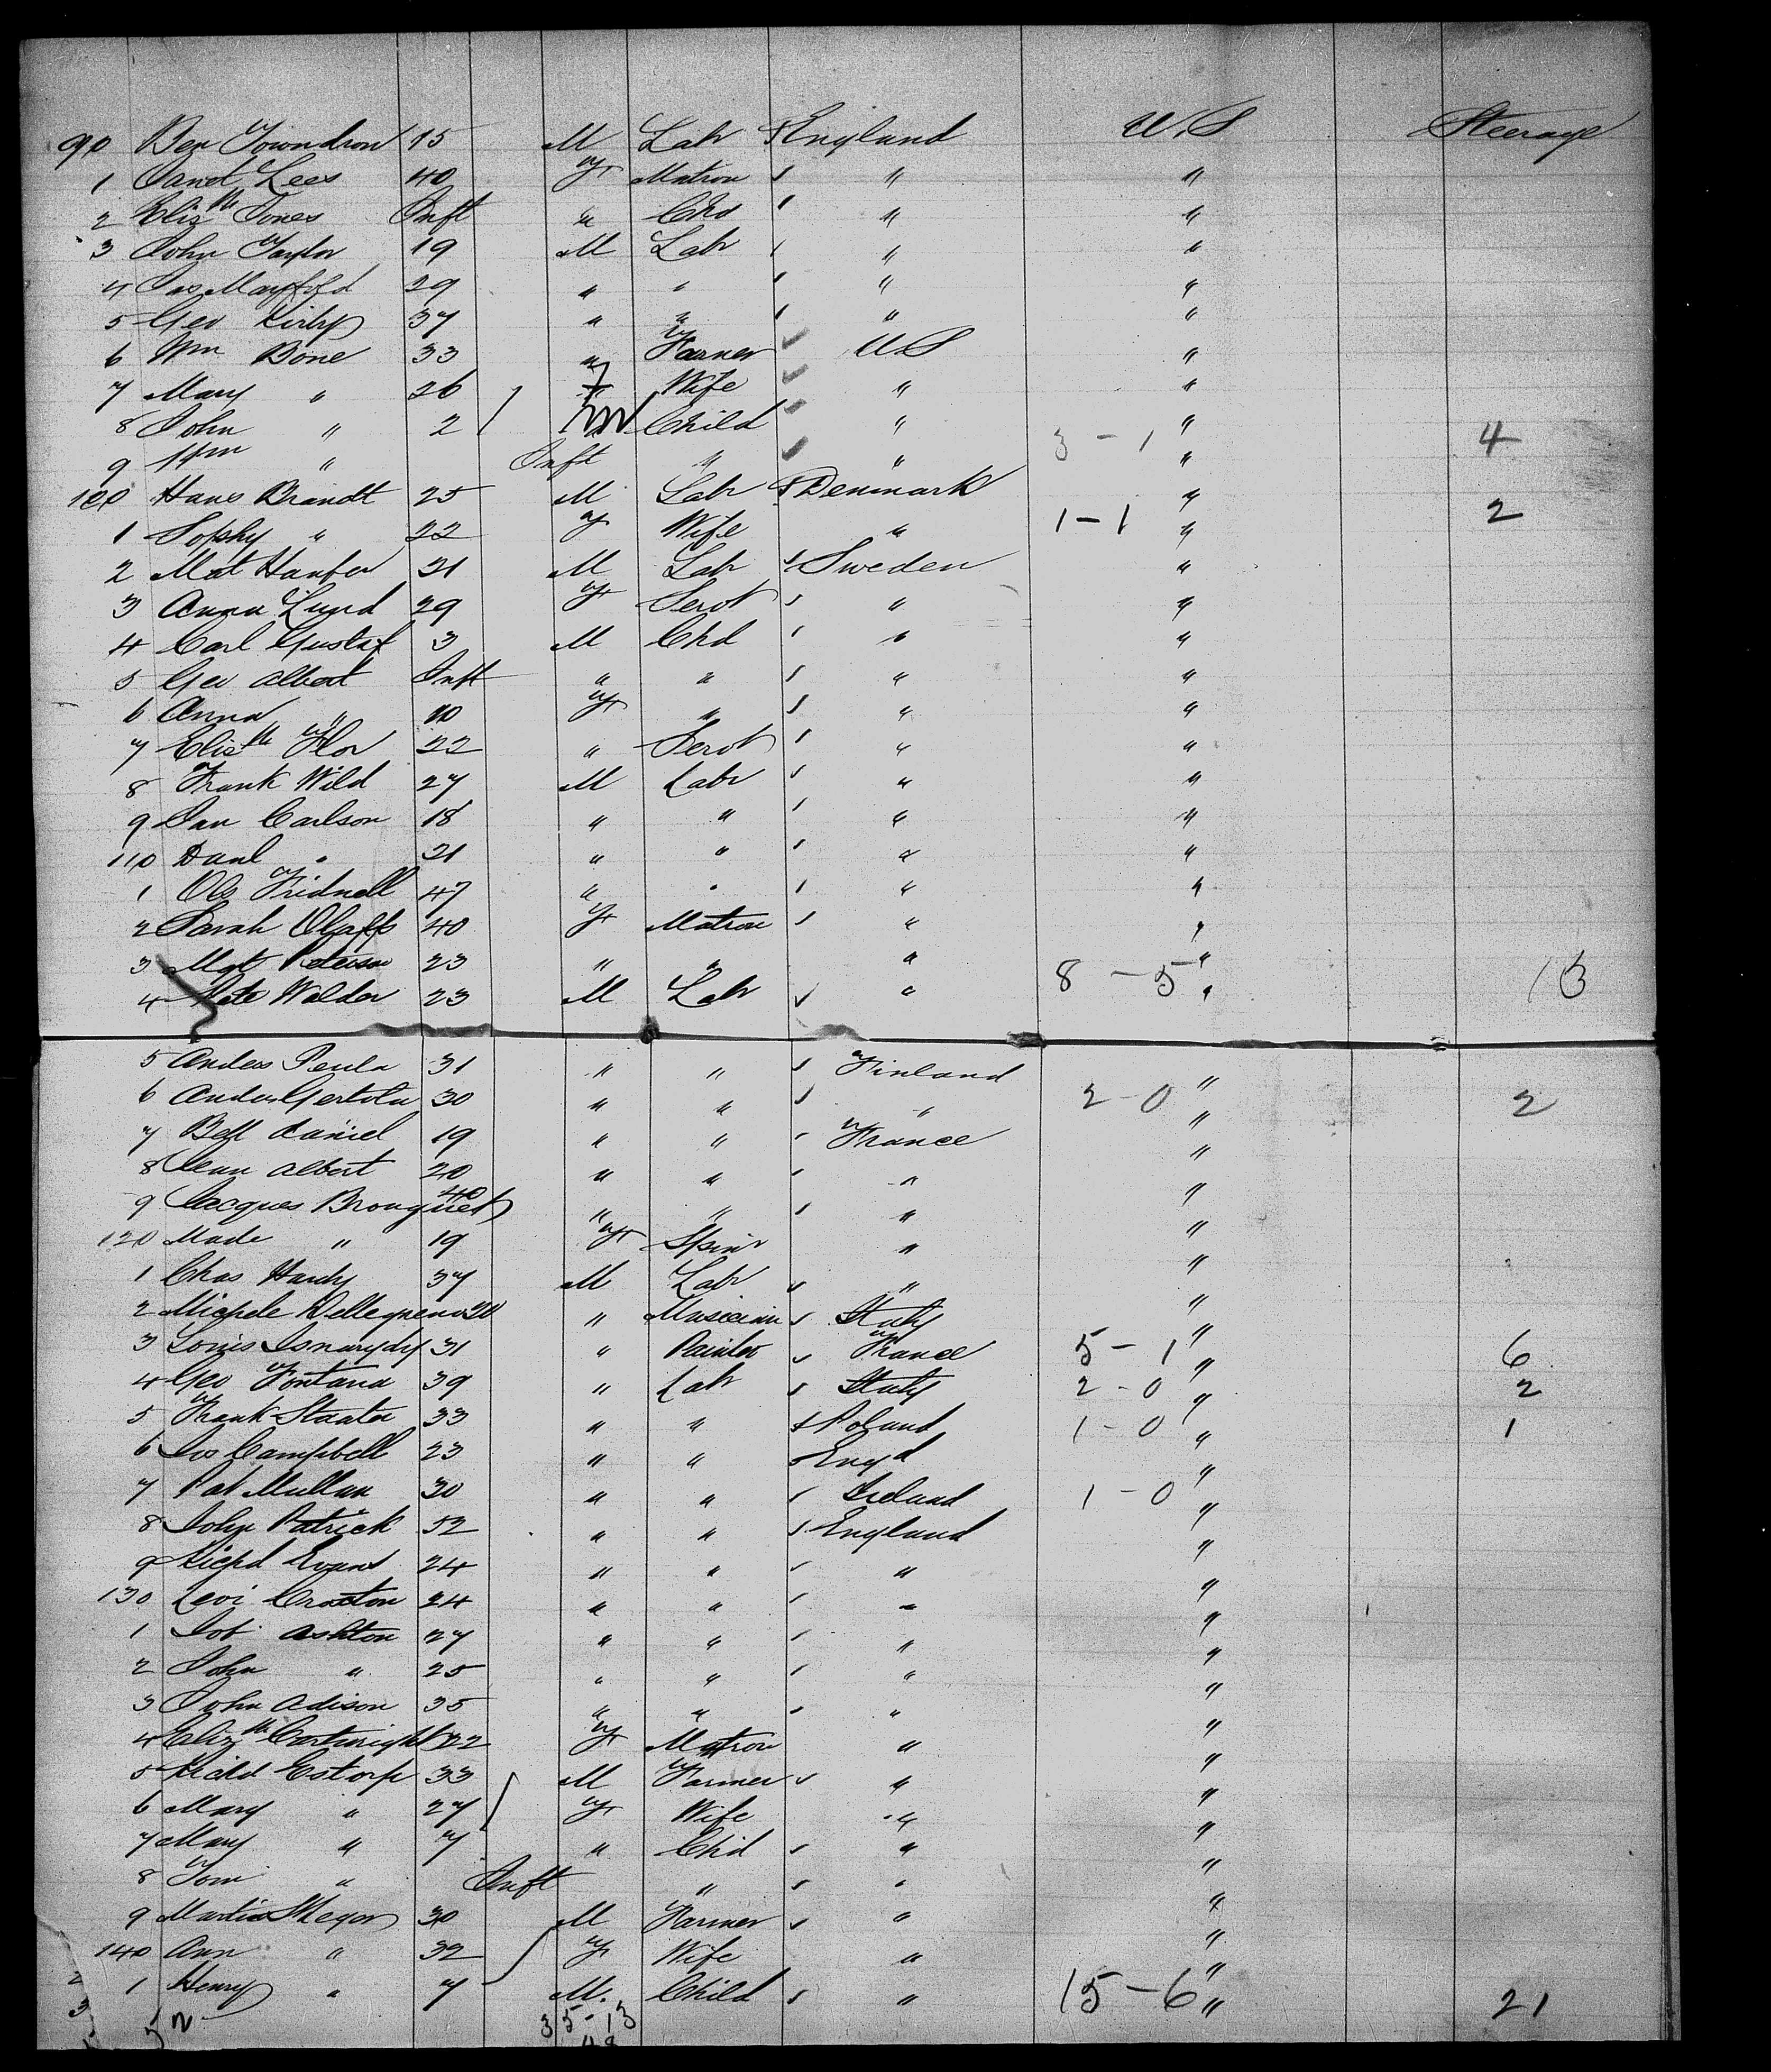 90 Ben Towndron 15 M Labr England U.S Steerage
1 Janet Lees 40 F Matron " "
2 Elizth Jones Inft " Chd " "
3 John Taylor 19 M Labr " "
4 Jas 29 " " " "
5 Geo Kirby 37 " " " "
6 Wm Bone 33 " Farmer U.S "
7 Mary " 26 F Wife " "
8 John " 2 M Child " "
9 Wm " Inft " " 3-1 " 4
100 Hans Brandt 25 M Labr Denmark "
1 Sophy " 22 F Wife " 1-1 " 2
2 Mat 21 M Labr Sweden "
3 Anna Lund 29 F Servt " "
4 Carl Gustaf 3 M Chd " "
5 Geo Albert Inft " " " "
6 Anna " 10 F " " "
7 Elisth Flor 22 " Servt " "
8 Frank Wild 27 M Labr " "
9 Jan Carlson 18 " " " "
110 Danl " 21 " " " "
1 Ole Fridnell 47 " " " "
2 Sarah Olaffs 40 F Matron " "
3 Mat Peterson 23 " " " "
4 Pete Walder 23 M Labr " 8-5 " 13
5 Anders Peula 31 " " Finland "
6 Anders Gertola 30 " " " 2-0 " 2
7 Bell Daniel 19 " " France "
8 Jean Albert 20 " " " "
9 Jacques Brouquet 40 " " " "
120 Made " 19 F Spinr " "
1 Chas Hardy 37 M Labr " "
2 Michele 20 " Musician Italy "
3 Louis 31 " Painter France 5-1 " 6
4 Geo Fontana 39 " Labr Italy 2-0 " 2
5 Frank Staater 33 " " Poland 1-0 " 1
6 Jos Campbell 23 " " Engd "
7 Pat Mullan 30 " " Ireland 1-0 "
8 John Patrick 52 " " England "
9 Richd Evans 24 " " " "
130 Levi Croxton 24 " " " "
1 Job Ashton 27 " " " "
2 John " 25 " " " "
3 John Adison 35 " " " "
4 Elizth Cartwright 22 F Matron " "
5 Richd Estorp 33 M Farmer " "
6 Mary " 27 F Wife " "
7 Mary " 7 " Chd " "
8 Tom " Inft " " "
9 Martin 30 M Farmer " "
140 Ann " 32 F Wife " "
1 Henry " 7 M. Child " 15-6 " 21
52 35-13